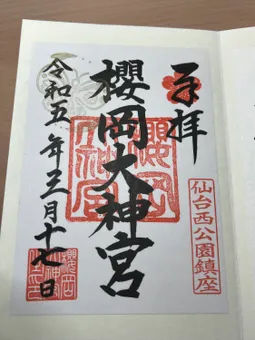 奉拝
櫻岡大神宮
仙台西公園鎮座
令和五年三月十七日